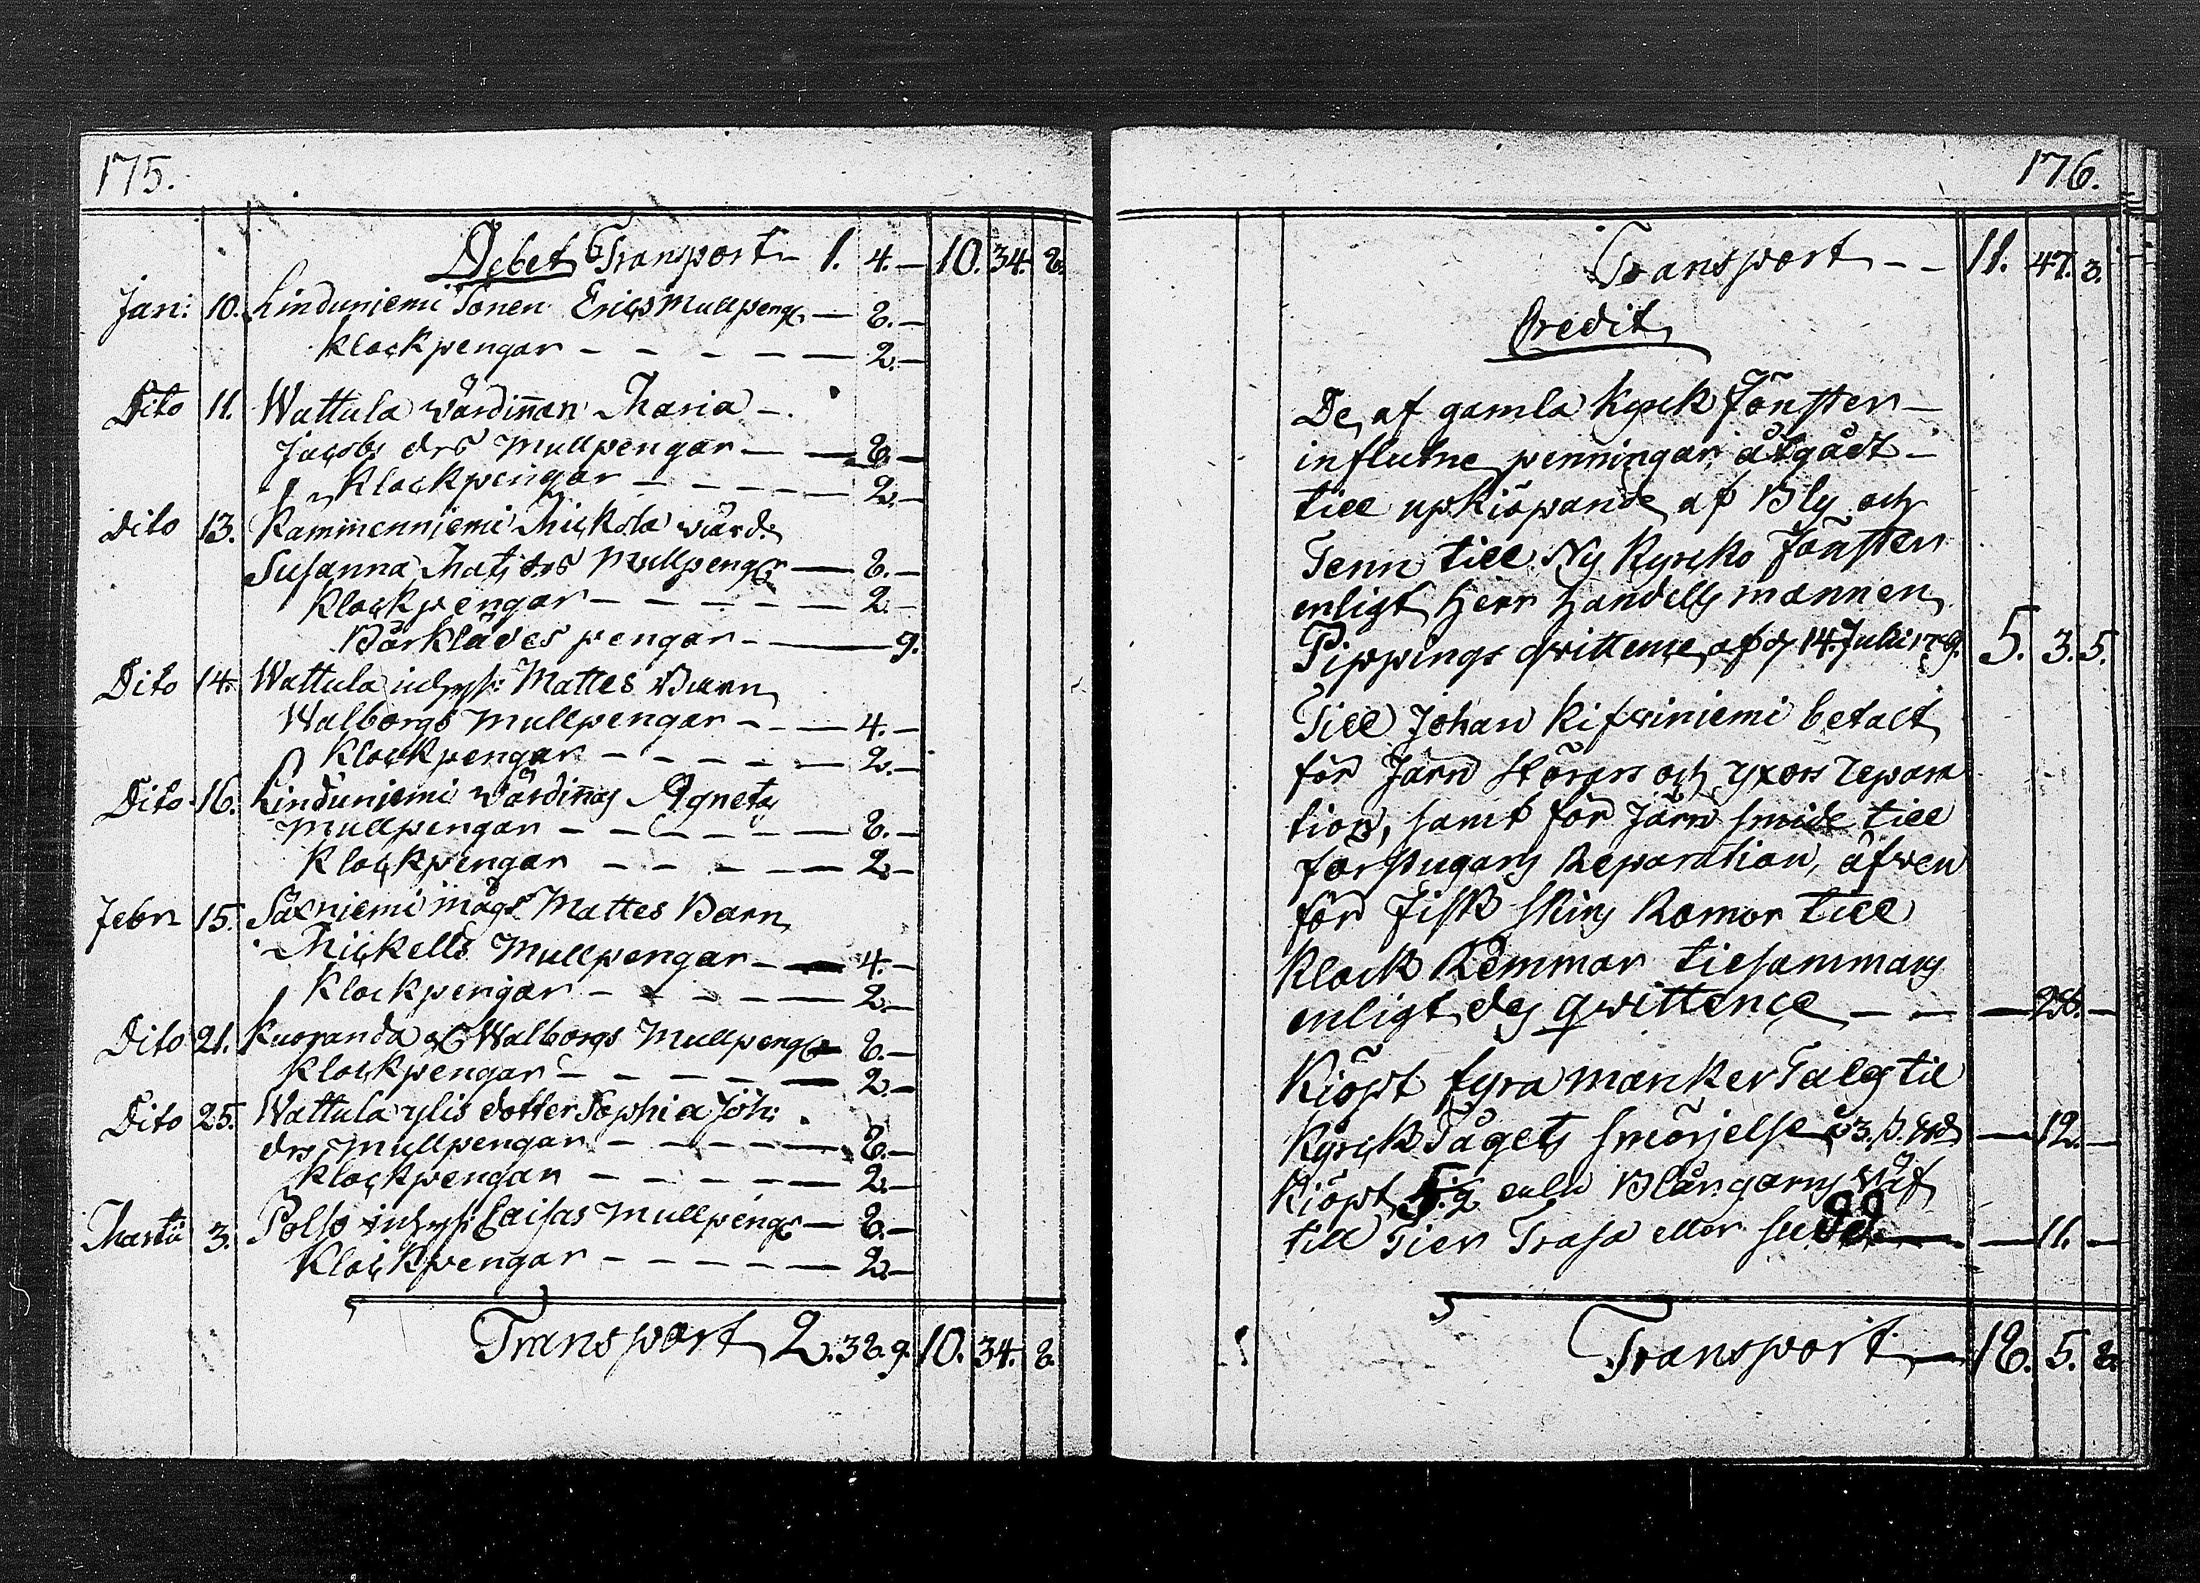 175.
Debet Transport 1. 4. — 10. 34. 8.
Jan: 10. Linduniemi Sonen Erics Mullpeng — 8. —
Klockpengar — — — — 2. —
Dito 11. Wattula Wärdinnan Maria —
Jacobs drs Mullpengar — — 8. —
Klockpengar — — — — 2. —
Dito 13. Kammenniemi Mickola wärd:
Susanna Mats drs Mullpengr — 8. —
Klockpengar — — — — 2. —
Bårklädes pengar — — 9.
Dito 14. Wattula inhys: Mattes Barn
Walborgs Mullpengar — — 4. —
Klockpengar — — — — 2. —
Dito 16. Linduniemi Wärdinnas Agneta
Mullpengar — — — — 8. —
Klockpengar — — — — 2. —
Febr 15. Saxniemi mågs Mattes Barn
Mickells Mullpengar — — 4. —
Klockpengar — — — — 2. —
Dito 21. Kuoranda Walborgs Mullpengr 8. —
Klockpengar — — — — 2. —
Dito 25. Wattula ylis dotter Sophia Joh:
drs Mullpengar — — — — 8. —
Klockpengar — — — — 2. —
Martii 3. Polso inhys: Caisas Mullpengr — 8. —
Klockpengar — — — — 2. —
Transport 2. 38. 9. 10. 34. 8.
176.
Transport — — 11. 47. 3.
Credit
De af gamla Kyrck Fönster —
influtne penningar åtgådt —
till upkiöpande af Bly och
Tenn till Ny Kyrcko Fönster
enligt Herr Handellsmannen
Pippings qvittence af d 14. Julii 5. 3. 5.
Till Johan Kifwiniemi betalt
för Järn störars och yxors repara
tion, samt för Järn smide till
förstugans Reparation, äfwen
för Fisk skins Romor till
Klock Remmar tilsammans
enligt des qwittence — — — 28. —
Kiöpt fyra marker Talg til
Kyrck Tågets smörjelse à 3. — 12. —
Kiöpt 5 1/2 aln Blångarns Wäf
till Tier Trasa eller sudd — — 11. —
Transport — 18. 5. 8.